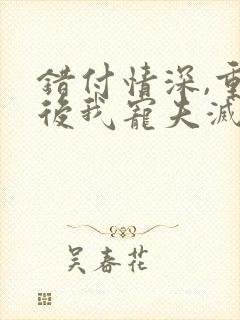 錯付情深,重
後我寵夫滅
吳春花